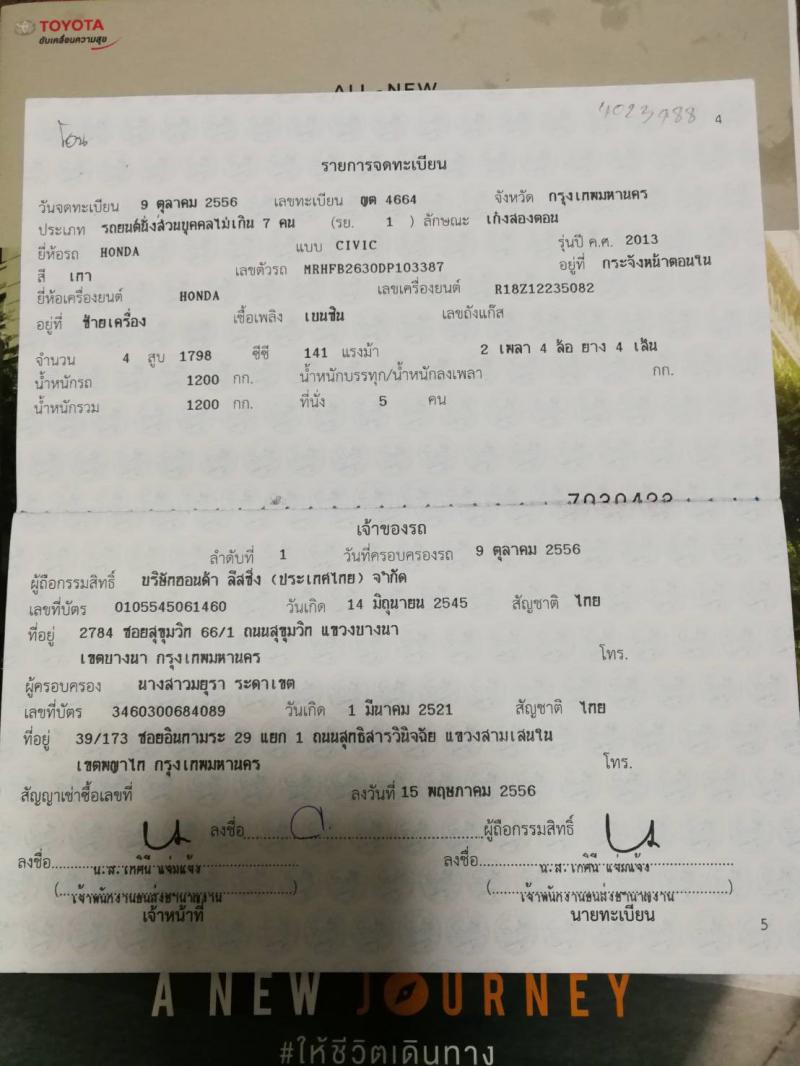 TOYOTA
ขับเคลื่อนความสุข
ALL-NEW
โอน
4023788 4
รายการจดทะเบียน
วันจดทะเบียน 9 ตุลาคม 2556 เลขทะเบียน ญต 4664 จังหวัด กรุงเทพมหานคร
ประเภท รถยนต์นั่งส่วนบุคคลไม่เกิน 7 คน (รย. 1 ) ลักษณะ เก๋งสองตอน
ยี่ห้อรถ HONDA แบบ CIVIC รุ่นปี ค.ศ. 2013
สี เทา เลขตัวรถ MRHFB2630DP103387 อยู่ที่ กระจังหน้าตอนใน
ยี่ห้อเครื่องยนต์ HONDA เลขเครื่องยนต์ R18Z12235082
อยู่ที่ ซ้ายเครื่อง เชื้อเพลิง เบนซิน เลขถังแก๊ส
จำนวน 4 สูบ 1798 ซีซี 141 แรงม้า 2 เพลา 4 ล้อ ยาง 4 เส้น
น้ำหนักรถ 1200 กก. น้ำหนักบรรทุก/น้ำหนักลงเพลา กก.
น้ำหนักรวม 1200 กก. ที่นั่ง 5 คน
เจ้าของรถ
ลำดับที่ 1 วันที่ครอบครองรถ 9 ตุลาคม 2556
ผู้ถือกรรมสิทธิ์ บริษัทฮอนด้า ลีสซิ่ง (ประเทศไทย) จำกัด
เลขที่บัตร 0105545061460 วันเกิด 14 มิถุนายน 2545 สัญชาติ ไทย
ที่อยู่ 2784 ซอยสุขุมวิท 66/1 ถนนสุขุมวิท แขวงบางนา
เขตบางนา กรุงเทพมหานคร โทร.
ผู้ครอบครอง นางสาวมยุรา ระดาเขต
เลขที่บัตร 3460300684089 วันเกิด 1 มีนาคม 2521 สัญชาติ ไทย
ที่อยู่ 39/173 ซอยอินทามระ 29 แยก 1 ถนนสุทธิสารวินิจฉัย แขวงสามเสนใน
เขตพญาไท กรุงเทพมหานคร โทร.
สัญญาเช่าซื้อเลขที่ ลงวันที่ 15 พฤษภาคม 2556
ลงชื่อ ผู้ถือกรรมสิทธิ์
ลงชื่อ ลงชื่อ
น.ส.เกศินี แจ่มแจ้ง น.ส.เกศินี แจ่มแจ้ง
(เจ้าพนักงานขนส่งชำนาญงาน) (เจ้าพนักงานขนส่งชำนาญงาน)
เจ้าหน้าที่ นายทะเบียน
5
A NEW JOURNEY
#ให้ชีวิตเดินทาง